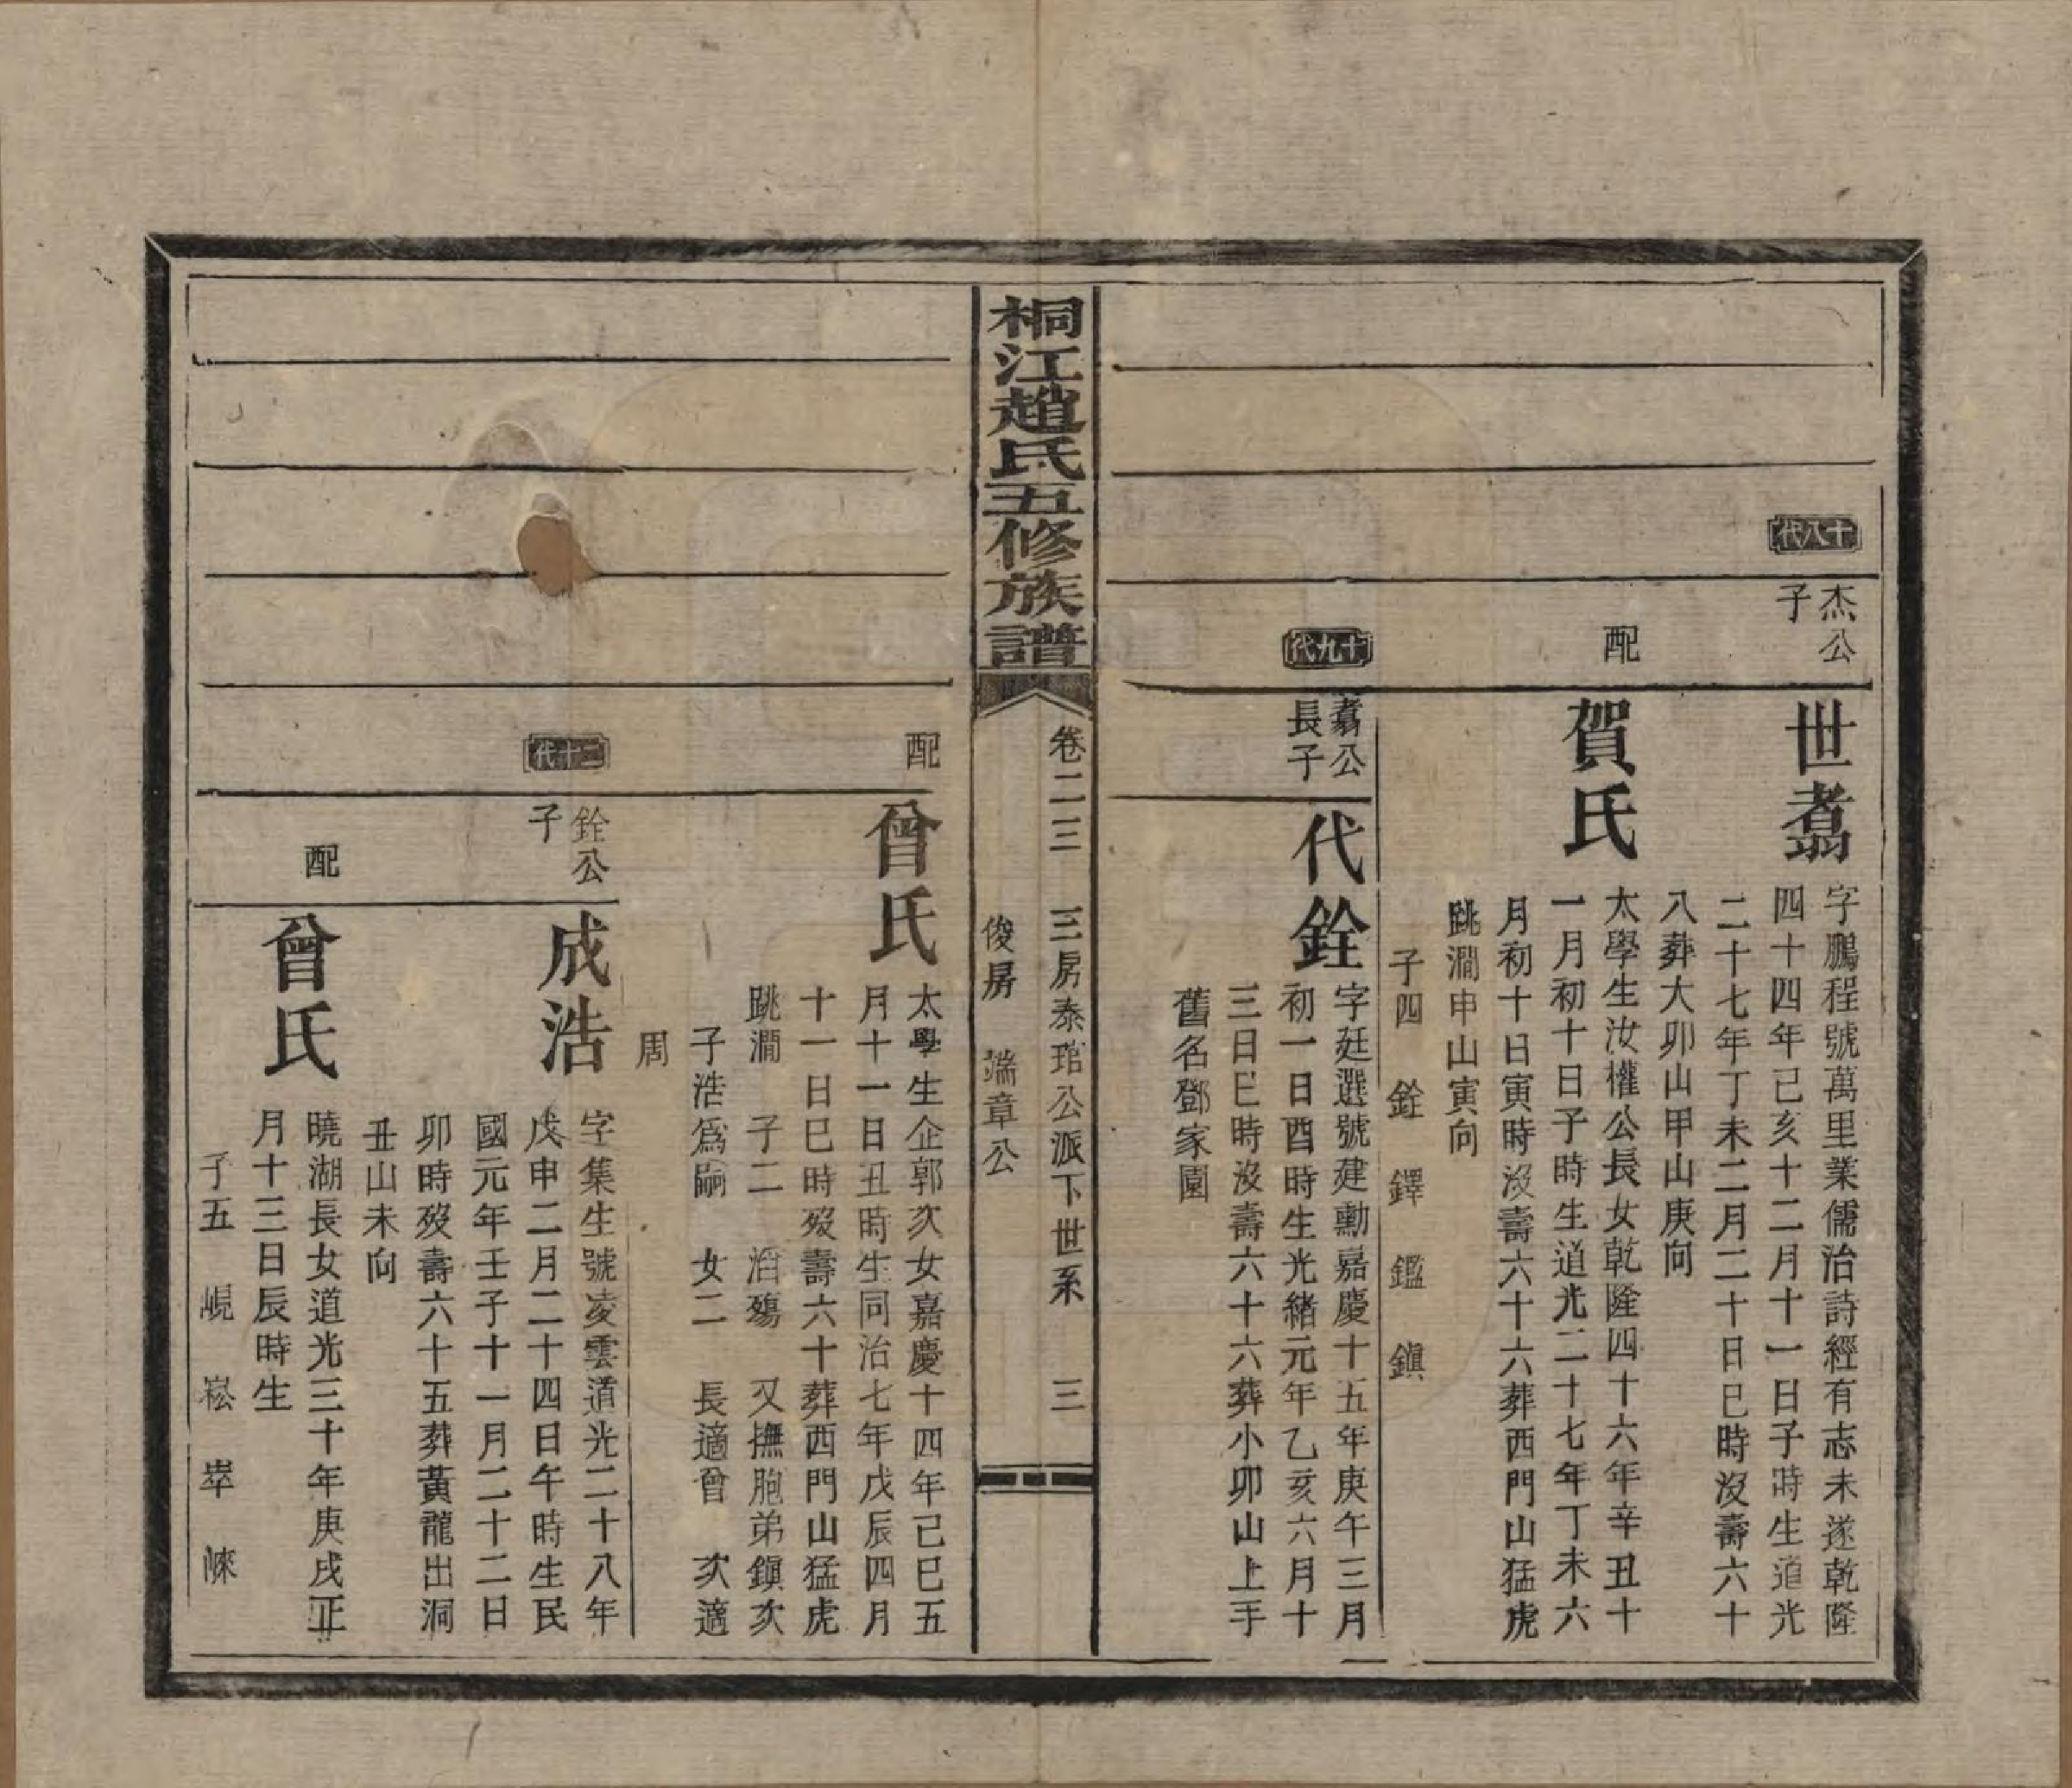 十八代
杰公
子
世翥
字鵬程號萬里業儒治詩經有志未遂乾隆
四十四年己亥十二月十一日子時生道光
二十七年丁未二月二十日巳時沒壽六十
八葬大卯山甲山庚向
配
賀氏
太學生汝權公長女乾隆四十六年辛丑十
一月初十日子時生道光二十七年丁未六
月初十日寅時沒壽六十六葬西門山猛虎
跳澗申山寅向
子四 銓 鐸 鑑 鎮
十九代
翥公
長子
代銓
字廷選號建勳嘉慶十五年庚午三月
初一日酉時生光緒元年乙亥六月十
三日巳時沒壽六十六葬小卯山上手
舊名鄧家園
桐江趙氏五修族譜
卷二三 三房泰琯公派下世系 三
俊房 端章公
配
曾氏
太學生企郭次女嘉慶十四年己巳五
月十一日丑時生同治七年戊辰四月
十一日巳時歿壽六十葬西門山猛虎
跳澗 子二 滔殤 又撫胞弟鎮次
子浩為嗣 女二 長適曾 次適
周
二十代
銓公
子
成浩
字集生號凌雲道光二十八年
戊申二月二十四日午時生民
國元年壬子十一月二十二日
卯時歿壽六十五葬黃龍出洞
丑山未向
配
曾氏
曉湖長女道光三十年庚戌正
月十三日辰時生
子五 峴 崧 崒 崍